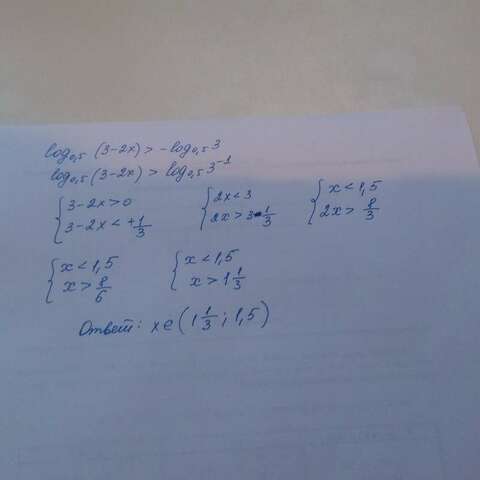 log₀,₅ (3-2x) > -log₀,₅ 3
log₀,₅ (3-2x) > log₀,₅ 3⁻¹
{3-2x>0 {2x<3 {x<1,5
{3-2x<+1/3 {2x>3-1/3 {2x>8/3
{x<1,5 {x<1,5
{x>8/6 {x>1 1/3
Ответ: x∈(1 1/3; 1,5)